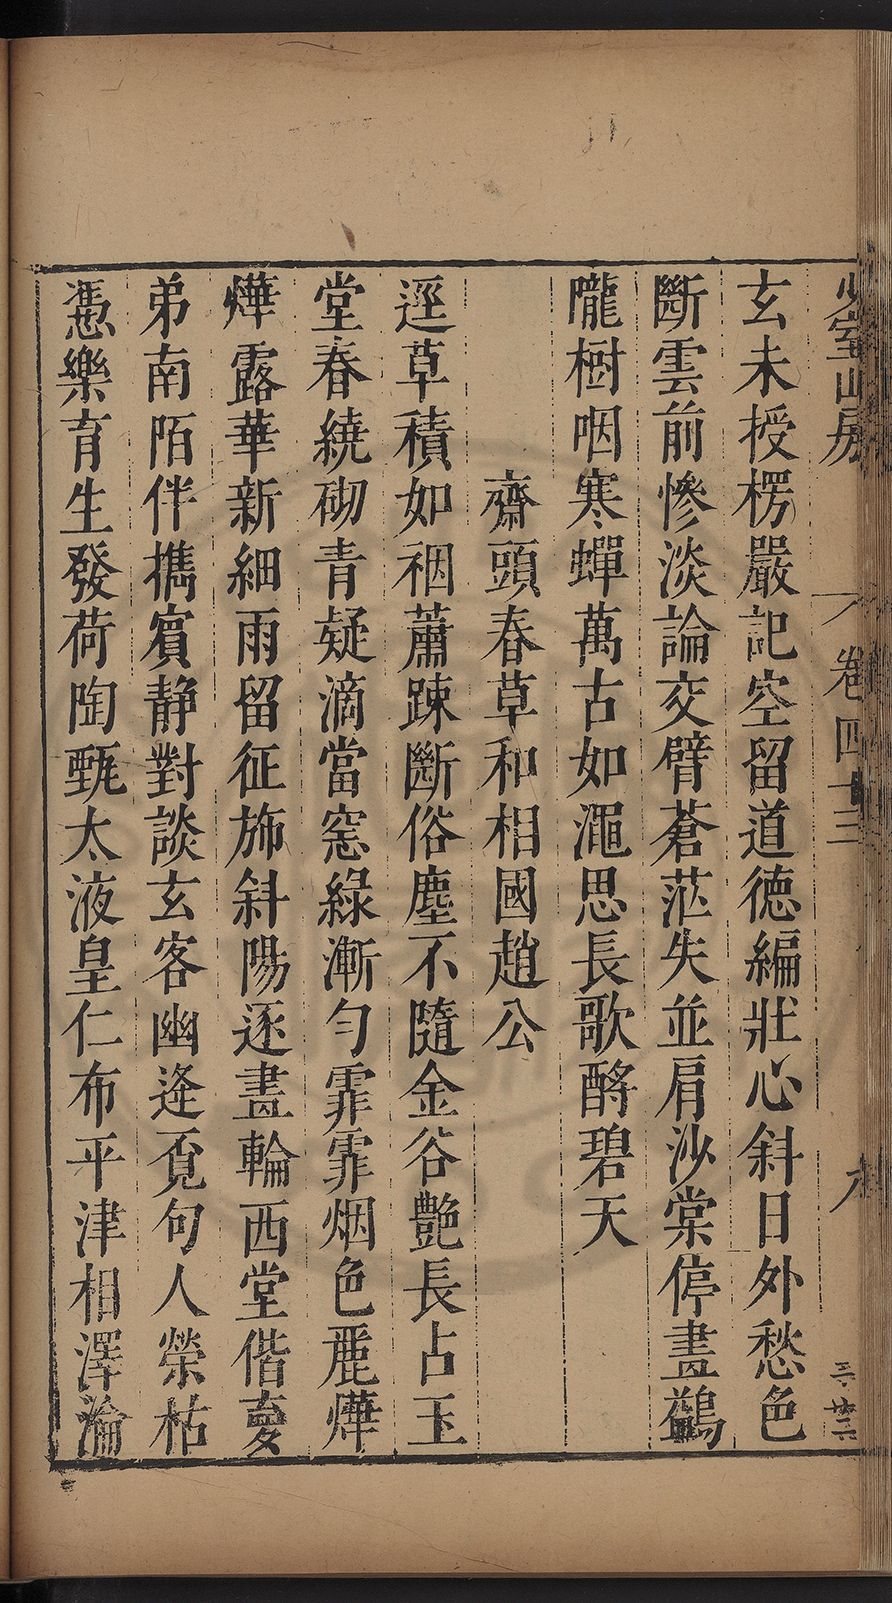 少室山房
卷四十三
八
玄未授楞嚴記空留道德編壯心斜日外愁色
斷雲前慘淡論交臂蒼茫失並肩沙棠停畫鷁
隴樹咽寒蟬萬古如澠思長歌酹碧天
齋頭春草和相國趙公
逕草積如裀蕭踈斷俗塵不隨金谷艷長占玉
堂春繞砌青疑滴當窓綠漸勻霏霏烟色麗燁
燁露華新細雨留征斾斜陽逐畫輪西堂偕夢
弟南陌伴携賓静對談玄客幽逢覓句人榮枯
憑樂育生發荷陶甄太液皇仁布平津相澤淪